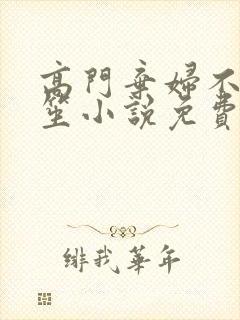 高門棄婦不
笙小說免費
緋我華年